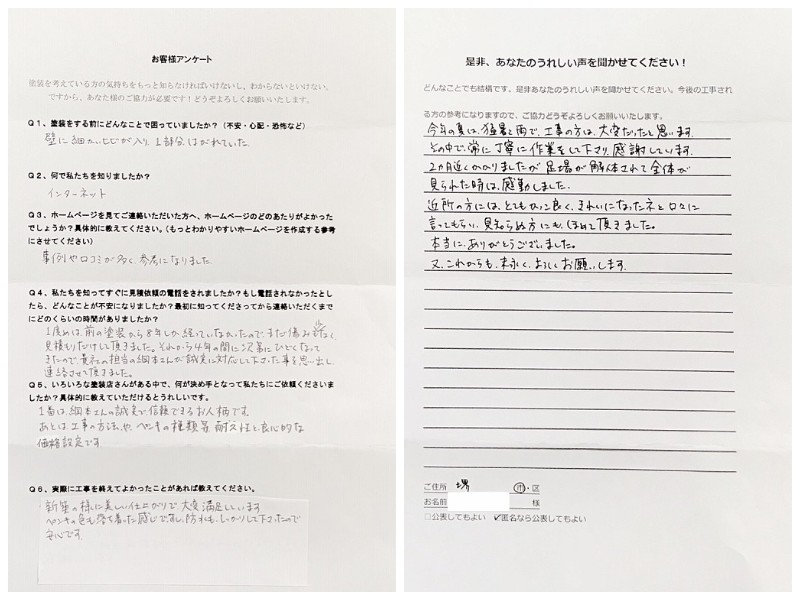 お客様アンケート
塗装を考えている方の気持ちをもっと知らなければいけないし、わからないといけない。
ですから、あなた様のご協力が必要です！どうぞよろしくお願いいたします。
Q１、塗装をする前にどんなことで困っていましたか？（不安・心配・恐怖など）
壁に細かいヒビが入り、1部分はがれていた。
Q２、何で私たちを知りましたか？
インターネット
Q３、ホームページを見てご連絡いただいた方へ、ホームページのどのあたりがよかった
でしょうか？具体的に教えてください。（もっとわかりやすいホームページを作成する参考
にさせてください）
事例や口コミが多く、参考になりました。
Q４、私たちを知ってすぐに見積依頼の電話をされましたか？もし電話されなかったとし
たら、どんなことが不安になりましたか？最初に知ってくださってから連絡いただくまで
にどのくらいの時間がありましたか？
1度めは、前の塗装から8年しか経っていなかったので、まだ傷みも少なく
見積もりだけして頂きました。それから4年の間に次第にひどくなって
きたので貴社の担当の細本さんが誠実に対応して下さった事を思い出し
連絡させて頂きました。
Q５、いろいろな塗装店さんがある中で、何が決め手となって私たちにご依頼くださいま
したか？具体的に教えていただけるとうれしいです。
1番は、細本さんの誠実で信頼できるお人柄です。
あとは工事の方法や、ペンキの種類、耐久性と良心的な
価格設定です
Q６、実際に工事を終えてよかったことがあれば教えてください。
新築の様に美しい仕上がりで、大変満足しています
ペンキの色も落ち着いた感じですし、防水も、しっかりして下さったので
安心です
是非、あなたのうれしい声を聞かせてください！
どんなことでも結構です。是非あなたのうれしい声を聞かせてください。今後の工事され
る方の参考になりますので、ご協力どうぞよろしくお願いいたします。
今年の夏は、猛暑と雨で、工事の方は、大変だったと思います。
その中で、常に丁寧に作業をして下さり、感謝しています。
2カ月近くかかりましたが足場が解体されて全体が
見られた時は、感動しました。
近所の方には、とてもカッコ良く、きれいになったネと口々に
言ってもらい、見知らぬ方にも、ほめて頂きました。
本当に、ありがとうございました。
又、これからも、末永く、よろしくお願いします。
ご住所 堺 市・区
お名前 様
□公表してもよい ✓匿名なら公表してもよい